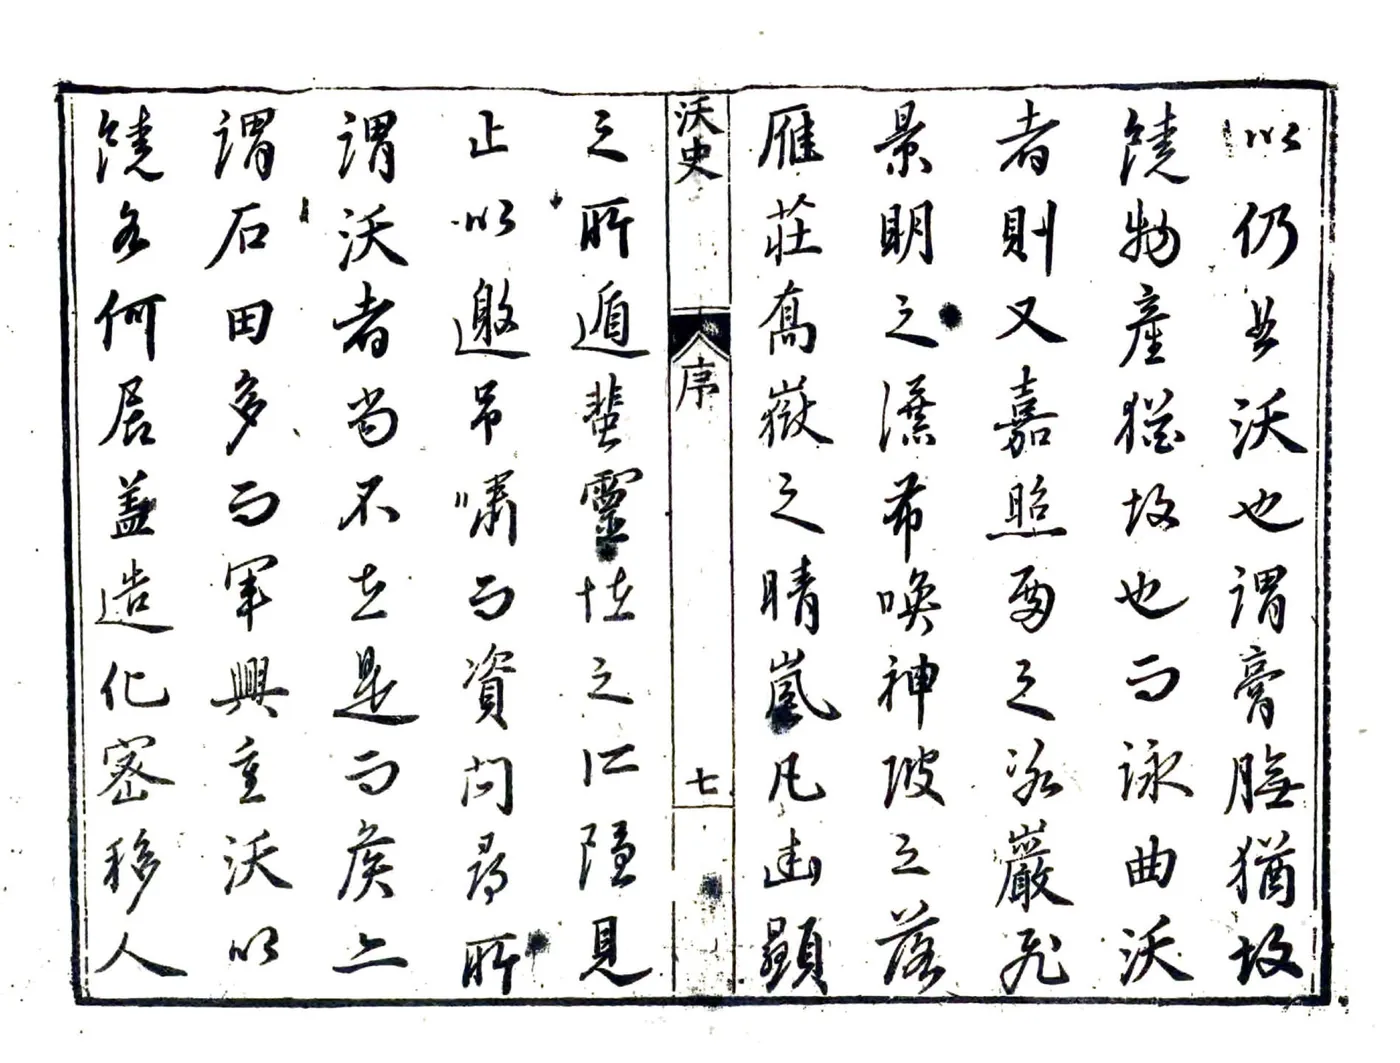 以仍是沃也謂膏腴猶故
饒物產猶故也而詠曲沃
者則又嘉照雨之泌巖飛
景明之瀑希喚神陂之落
雁莊喬嶽之晴嵐凡幽顯
沃史
序
七
之所遁蜚靈怪之所隱見
止以邀吊嘯而資問尋所
謂沃者尚不在是而矣上
謂石田多而軍興重沃以
饒名何居蓋造化密移人